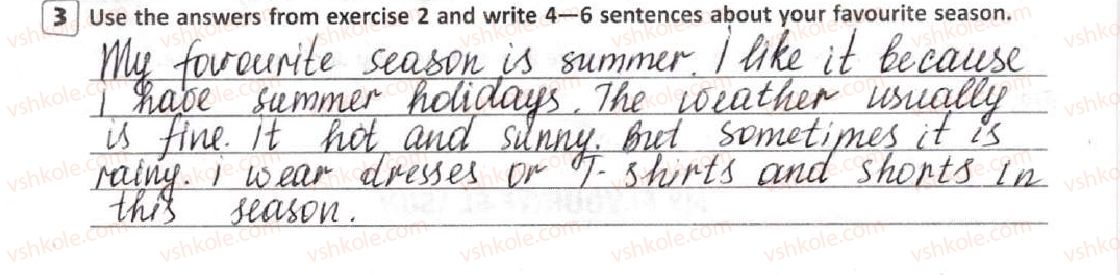 3 Use the answers from exercise 2 and write 4—6 sentences about your favourite season.
My favourite season is summer. I like it because
I have summer holidays. The weather usually
is fine. It hot and sunny. But sometimes it is
rainy. i wear dresses or T-shirts and shorts in
this season.